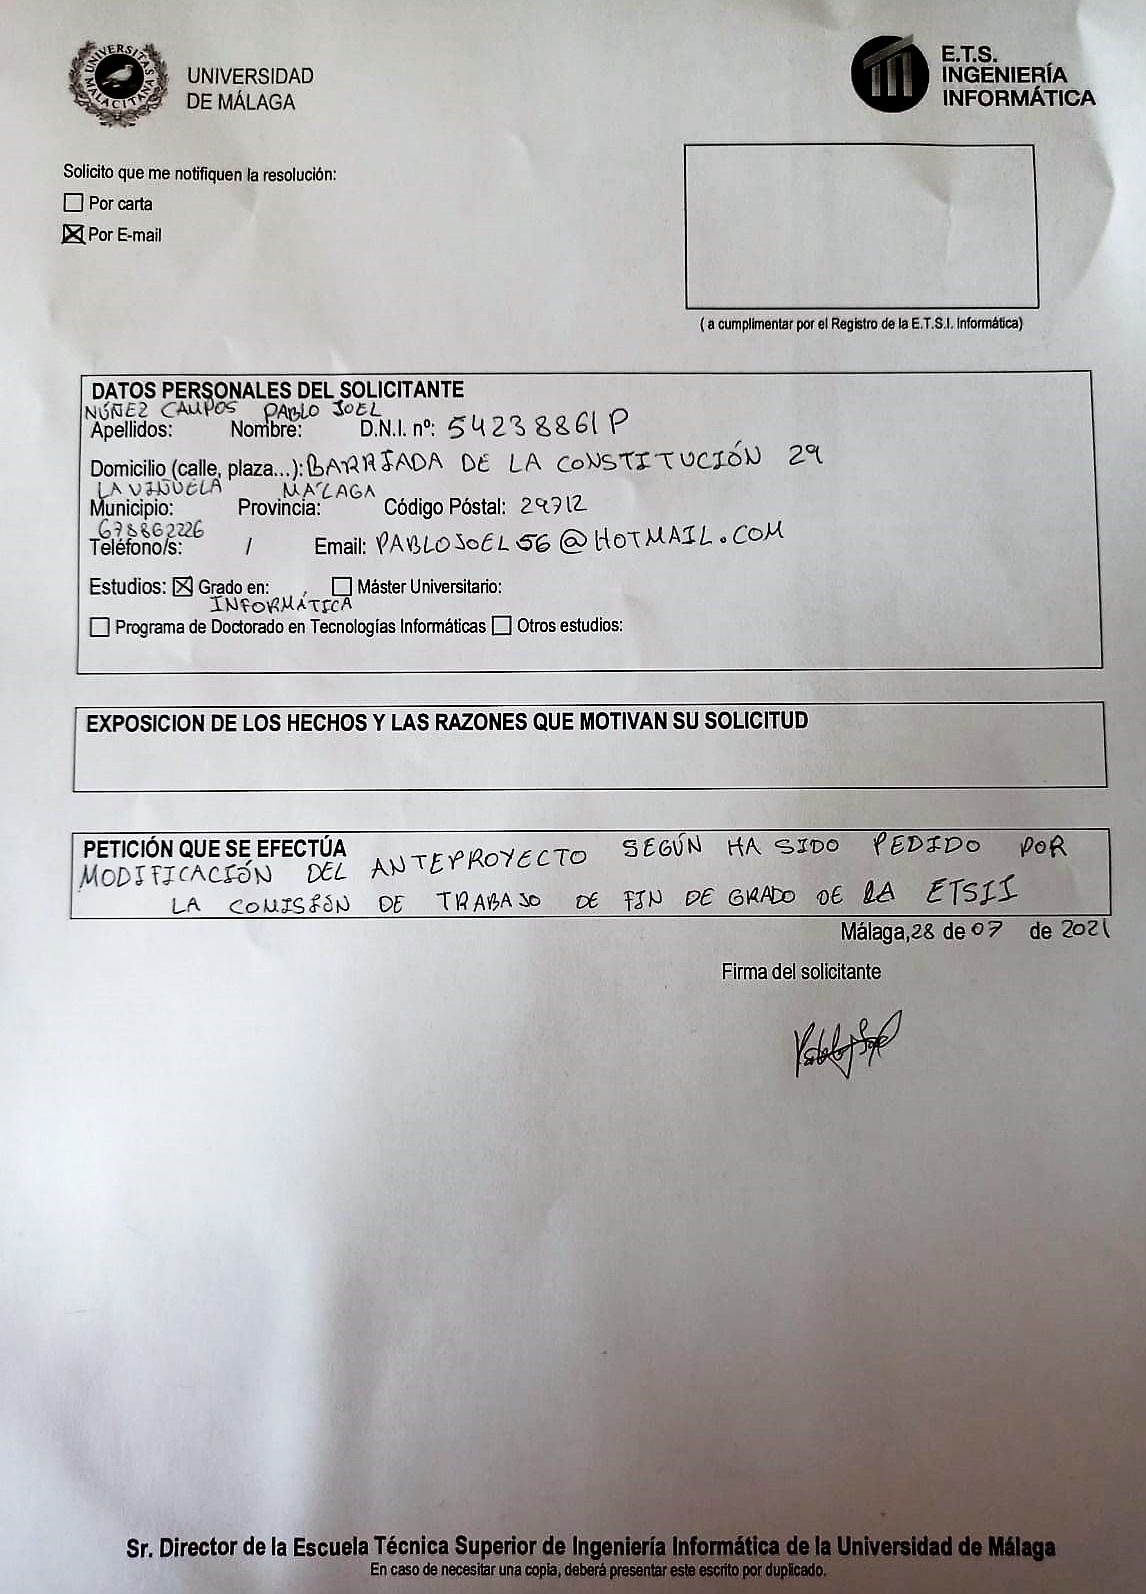 UNIVERSITAS MALACITANA
UNIVERSIDAD
DE MÁLAGA
E.T.S.
INGENIERÍA
INFORMÁTICA
Solicito que me notifiquen la resolución:
☐ Por carta
☒ Por E-mail
( a cumplimentar por el Registro de la E.T.S.I. Informática)
DATOS PERSONALES DEL SOLICITANTE
NÚÑEZ CAMPOS PABLO JOEL
Apellidos: Nombre: D.N.I. nº: 54238861P
Domicilio (calle, plaza...): BARRIADA DE LA CONSTITUCIÓN 29
LA VIÑUELA MÁLAGA
Municipio: Provincia: Código Póstal: 29712
678862226
Teléfono/s: / Email: PABLOJOEL56@HOTMAIL.COM
Estudios: ☒ Grado en: ☐ Máster Universitario:
INFORMÁTICA
☐ Programa de Doctorado en Tecnologías Informáticas ☐ Otros estudios:
EXPOSICION DE LOS HECHOS Y LAS RAZONES QUE MOTIVAN SU SOLICITUD
PETICIÓN QUE SE EFECTÚA
MODIFICACIÓN DEL ANTEPROYECTO SEGÚN HA SIDO PEDIDO POR
LA COMISIÓN DE TRABAJO DE FIN DE GRADO DE LA ETSII
Málaga, 28 de 07 de 2021
Firma del solicitante
Sr. Director de la Escuela Técnica Superior de Ingeniería Informática de la Universidad de Málaga
En caso de necesitar una copia, deberá presentar este escrito por duplicado.